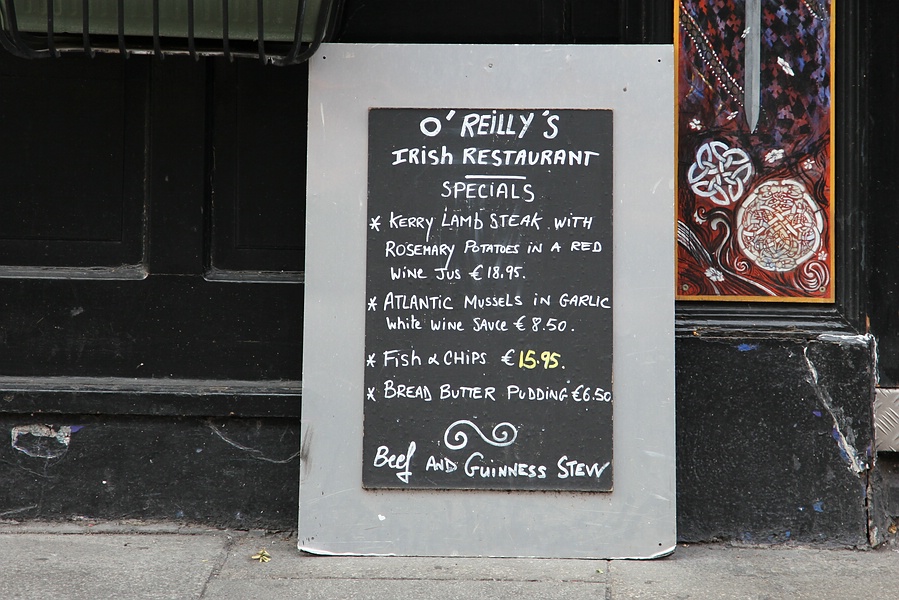 O'REILLY'S
IRISH RESTAURANT
SPECIALS
* KERRY LAMB STEAK WITH
ROSEMARY POTATOES IN A RED
WINE JUS € 18.95.
* ATLANTIC MUSSELS IN GARLIC
WHITE WINE SAUCE € 8.50.
* FISH & CHIPS € 15.95.
* BREAD BUTTER PUDDING €6.50
Beef AND GUINNESS STEW